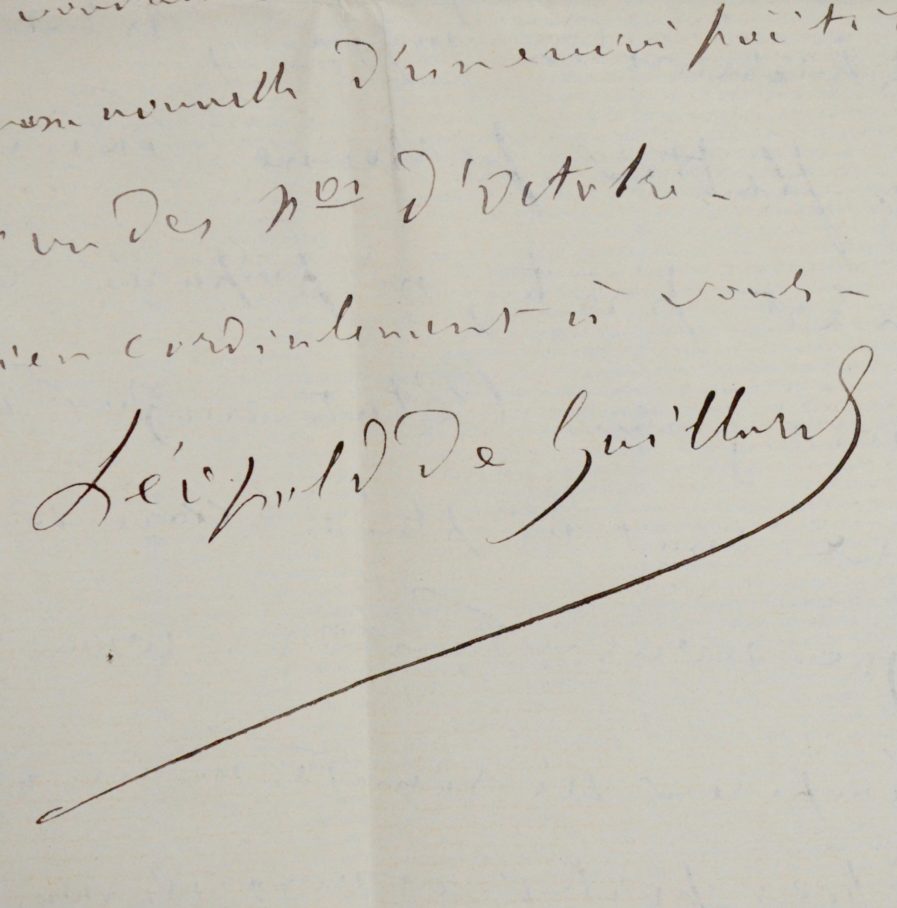 nouvelle d'un envoi poéti
un des nos d'Octobre -
ien cordialement à vous -
Léopold de Gaillard